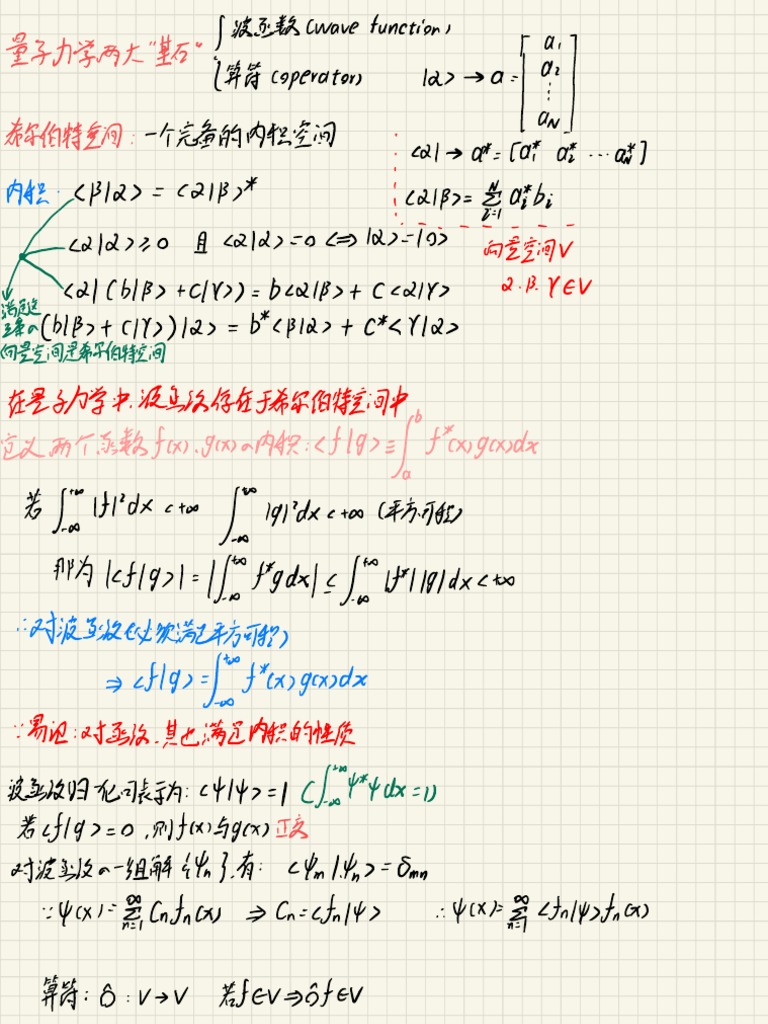 量子力学两大"基石" { 波函数 (wave function)
算符 (operator) |α> → a = [a₁ a₂ ⋮ a_N]
希尔伯特空间: 一个完备的内积空间
<α| → a* = [a₁* a₂* ⋯ a_N*]
内积: <β|α> = <α|β>*
<α|β> = Σ_{i=1}^{N} a_i* b_i
<α|α> ≥ 0 且 <α|α> = 0 <=> |α> = |0>
向量空间V
α. β. γ ∈ V
<α|(b|β> + c|γ>) = b<α|β> + c<α|γ>
满足这
三条の
向量空间是希尔伯特空间
(b|β> + c|γ>)|α> = b*<β|α> + c*<γ|α>
在量子力学中, 波函数存在于希尔伯特空间中
定义 两个函数 f(x). g(x) の内积: <f|g> ≡ ∫_a^b f*(x) g(x) dx
若 ∫_{-∞}^{+∞} |f|² dx < +∞ ∫_{-∞}^{+∞} |g|² dx < +∞ (平方可积)
那为 |<f|g>| = |∫_{-∞}^{+∞} f* g dx| ≤ ∫_{-∞}^{+∞} |f*||g| dx < +∞
∴对波函数 (必须满足平方可积)
⇒ <f|g> = ∫_{-∞}^{+∞} f*(x) g(x) dx
∵易证: 对函数, 其也满足内积的性质
波函数归一化可表示为: <ψ|ψ> = 1 (∫_{-∞}^{+∞} ψ*ψ dx = 1)
若 <f|g> = 0, 则 f(x) 与 g(x) 正交
对波函数の一组解 {ψ_n}, 有: <ψ_m|ψ_n> = δ_mn
∵ψ(x) = Σ_{n=1}^{∞} C_n f_n(x) ⇒ C_n = <f_n|ψ> ∴ψ(x) = Σ_{n=1}^{∞} <f_n|ψ> f_n(x)
算符: Ô : V → V 若 f∈V ⇒ Ôf∈V